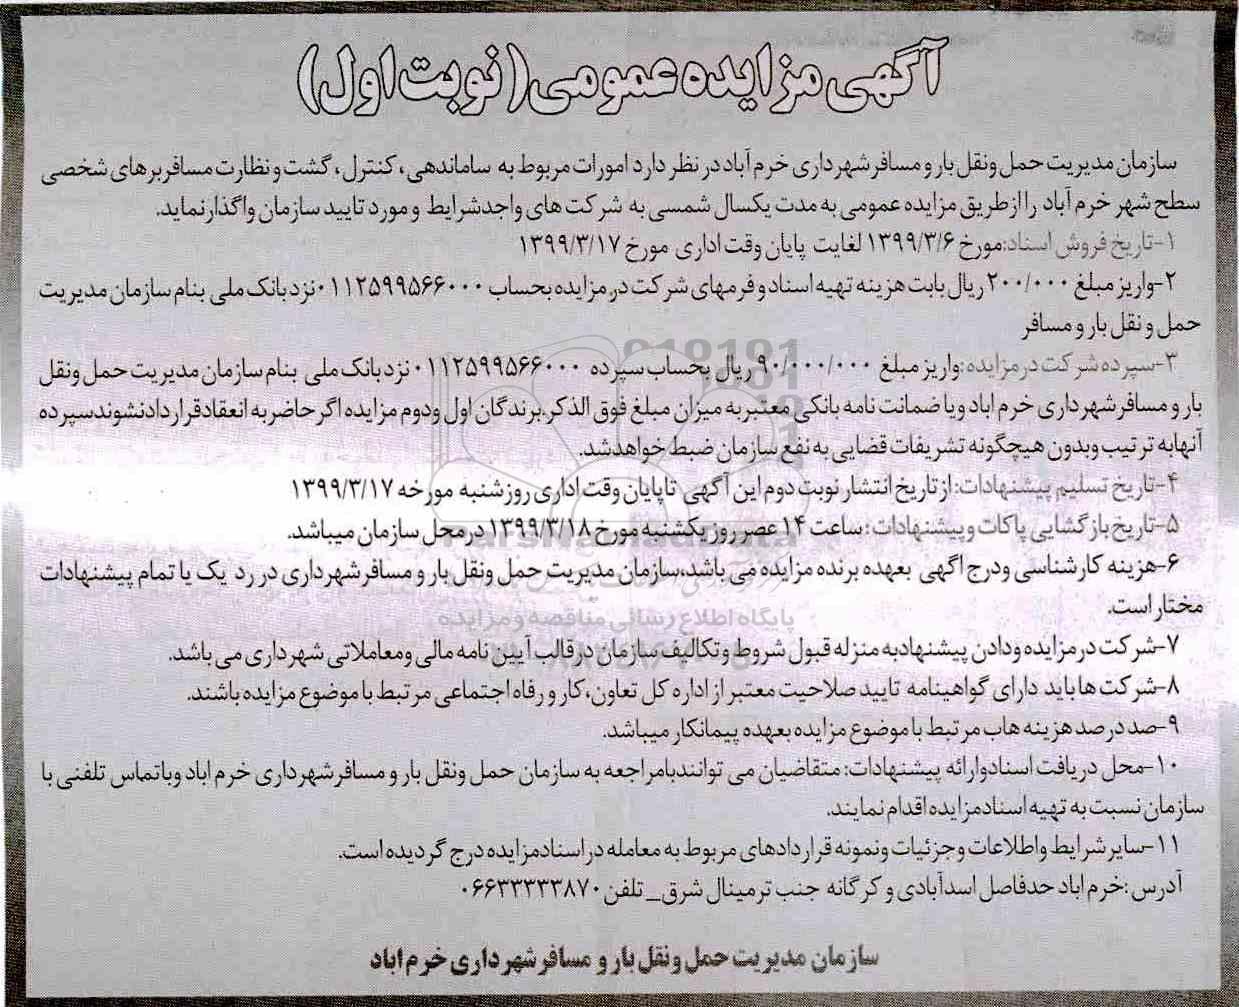 آگهی مزایده عمومی (نوبت اول)
سازمان مدیریت حمل ونقل بار و مسافر شهرداری خرم آباد در نظر دارد امورات مربوط به ساماندهی، کنترل، گشت و نظارت مسافربرهای شخصی
سطح شهر خرم آباد را ازطریق مزایده عمومی به مدت یکسال شمسی به شرکت های واجدشرایط و مورد تایید سازمان واگذارنماید.
۱-تاریخ فروش اسناد:مورخ ۱۳۹۹/۳/۶ لغایت پایان وقت اداری مورخ ۱۳۹۹/۳/۱۷
۲-واریز مبلغ ۲۰۰/۰۰۰ ریال بابت هزینه تهیه اسناد و فرمهای شرکت در مزایده بحساب ۰۱۱۲۵۹۹۵۶۶۰۰۰ نزد بانک ملی بنام سازمان مدیریت
حمل و نقل بار و مسافر
۳-سپرده شرکت درمزایده:واریز مبلغ ۹۰/۰۰۰/۰۰۰ ریال بحساب سپرده ۰۱۱۲۵۹۹۵۶۶۰۰۰ نزد بانک ملی بنام سازمان مدیریت حمل ونقل
بار و مسافر شهرداری خرم اباد ویا ضمانت نامه بانکی معتبر به میزان مبلغ فوق الذکر.برندگان اول ودوم مزایده اگر حاضر به انعقاد قرار داد نشوند سپرده
آنها به ترتیب وبدون هیچگونه تشریفات قضایی به نفع سازمان ضبط خواهدشد.
۴-تاریخ تسلیم پیشنهادات: از تاریخ انتشار نوبت دوم این آگهی تا پایان وقت اداری روز شنبه مورخه ۱۳۹۹/۳/۱۷
۵-تاریخ بازگشایی پاکات وپیشنهادات: ساعت ۱۴ عصر روز یکشنبه مورخ ۱۳۹۹/۳/۱۸ درمحل سازمان میباشد.
۶-هزینه کارشناسی ودرج اگهی بعهده برنده مزایده می باشد،سازمان مدیریت حمل ونقل بار و مسافر شهرداری در رد یک یا تمام پیشنهادات
مختار است.
پایگاه اطلاع رسانی مناقصه و مزایده
۷-شرکت در مزایده ودادن پیشنهاد به منزله قبول شروط و تکالیف سازمان درقالب آیین نامه مالی ومعاملاتی شهرداری می باشد.
۸-شرکت ها باید دارای گواهینامه تایید صلاحیت معتبر از اداره کل تعاون،کار و رفاه اجتماعی مرتبط با موضوع مزایده باشند.
۹-صد در صد هزینه هاب مرتبط با موضوع مزایده بعهده پیمانکار میباشد.
۱۰-محل دریافت اسناد وارائه پیشنهادات: متقاضیان می توانند بامراجعه به سازمان حمل ونقل بار و مسافر شهرداری خرم اباد وباتماس تلفنی با
سازمان نسبت به تهیه اسناد مزایده اقدام نمایند.
۱۱-سایر شرایط واطلاعات وجزئیات ونمونه قراردادهای مربوط به معامله در اسنادمزایده درج گردیده است.
آدرس:خرم اباد حدفاصل اسدآبادی و کرگانه جنب ترمینال شرق_ تلفن ۰۶۶۳۳۳۳۳۸۷۰
سازمان مدیریت حمل ونقل بار و مسافر شهرداری خرم اباد